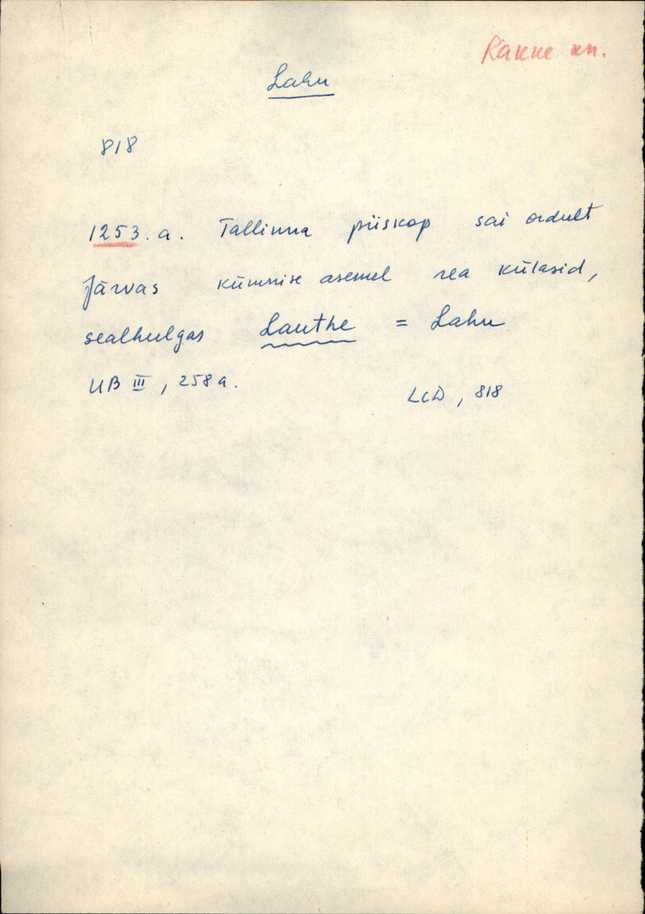 Rakke kn.
Lahu
818
1253. a. Tallinna piiskop sai ordult
Järvas kümnise asemel rea külasid,
sealhulgas Lauthe = Lahu
UB III, 258a.
LCD, 818